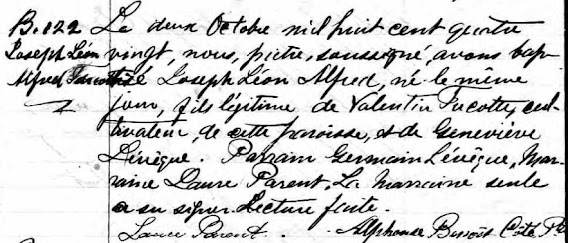 B.122
Joseph Léon
Alfred Turcotte
Le deux Octobre mil huit cent quatre
vingt, nous, prêtre, soussigné, avons bap-
tisé Joseph Léon Alfred, né le même
jour, fils légitime de Valentin Turcotte, cul-
tivateur, de cette paroisse, et de Geneviève
Lévêque. Parrain Germain Lévêque, Mar-
raine Laure Parent. La Marraine seule
a su signer. Lecture faite.
Laure Parent. Alphonse Benoît Côté Ptre